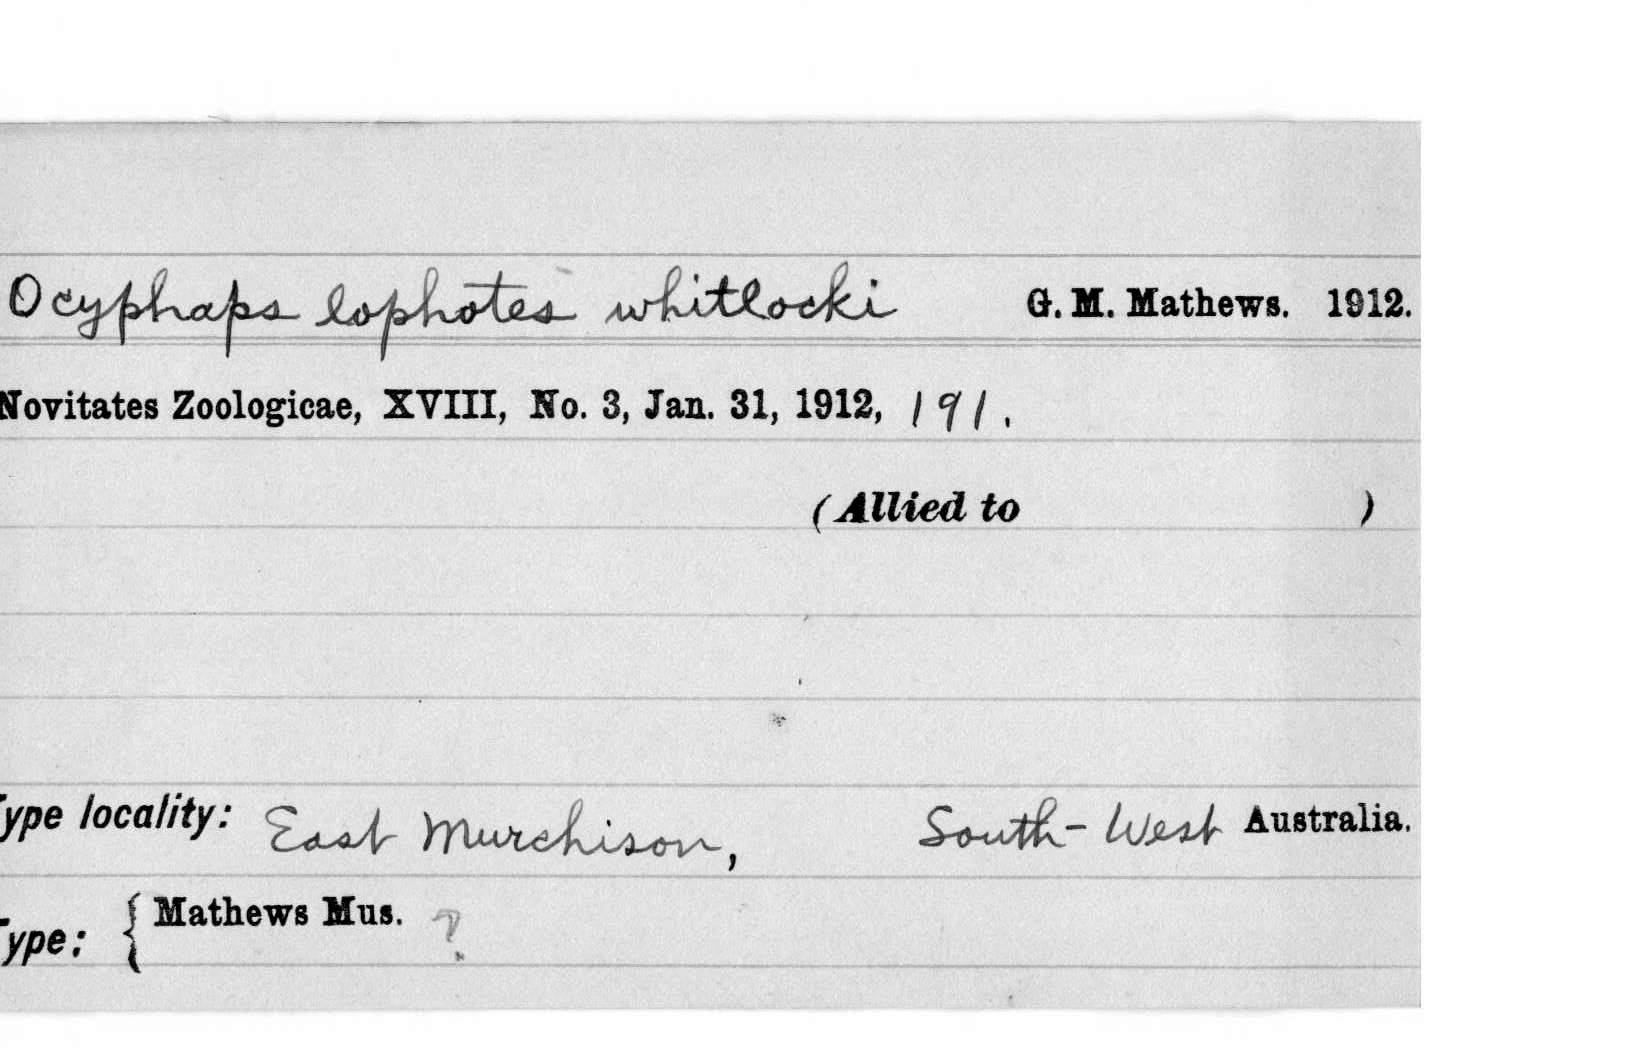 Ocyphaps lophotes whitlocki G. M. Mathews. 1912.
Novitates Zoologicae, XVIII, No. 3, Jan. 31, 1912, 191.
(Allied to )
Type locality: East Murchison, South-West Australia.
Type: { Mathews Mus. ?